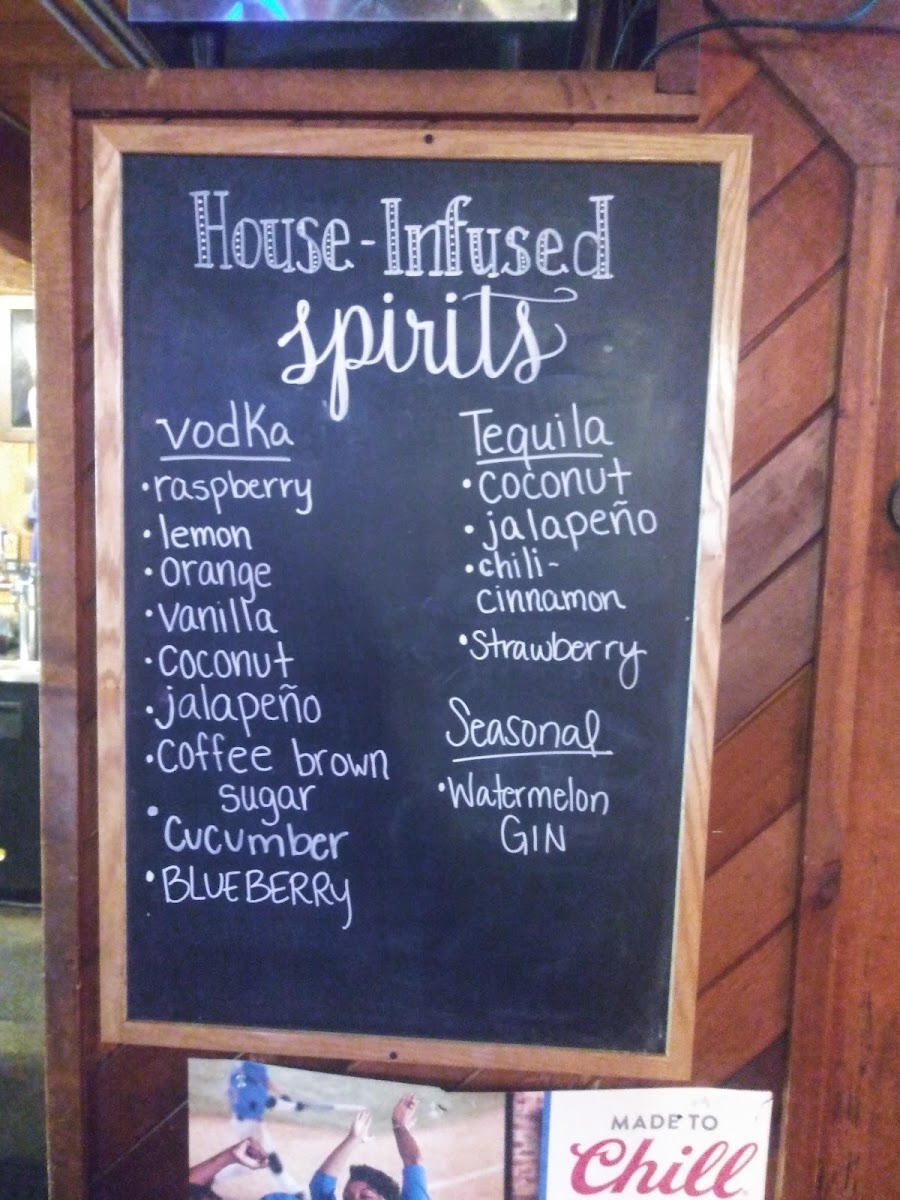 House-Infused
spirits
vodka
•raspberry
•lemon
•orange
•vanilla
•coconut
•jalapeño
•coffee brown
sugar
•cucumber
•BLUEBERRY
Tequila
•coconut
•jalapeño
•chili-
cinnamon
•Strawberry
Seasonal
•Watermelon
GIN
MADE TO
Chill